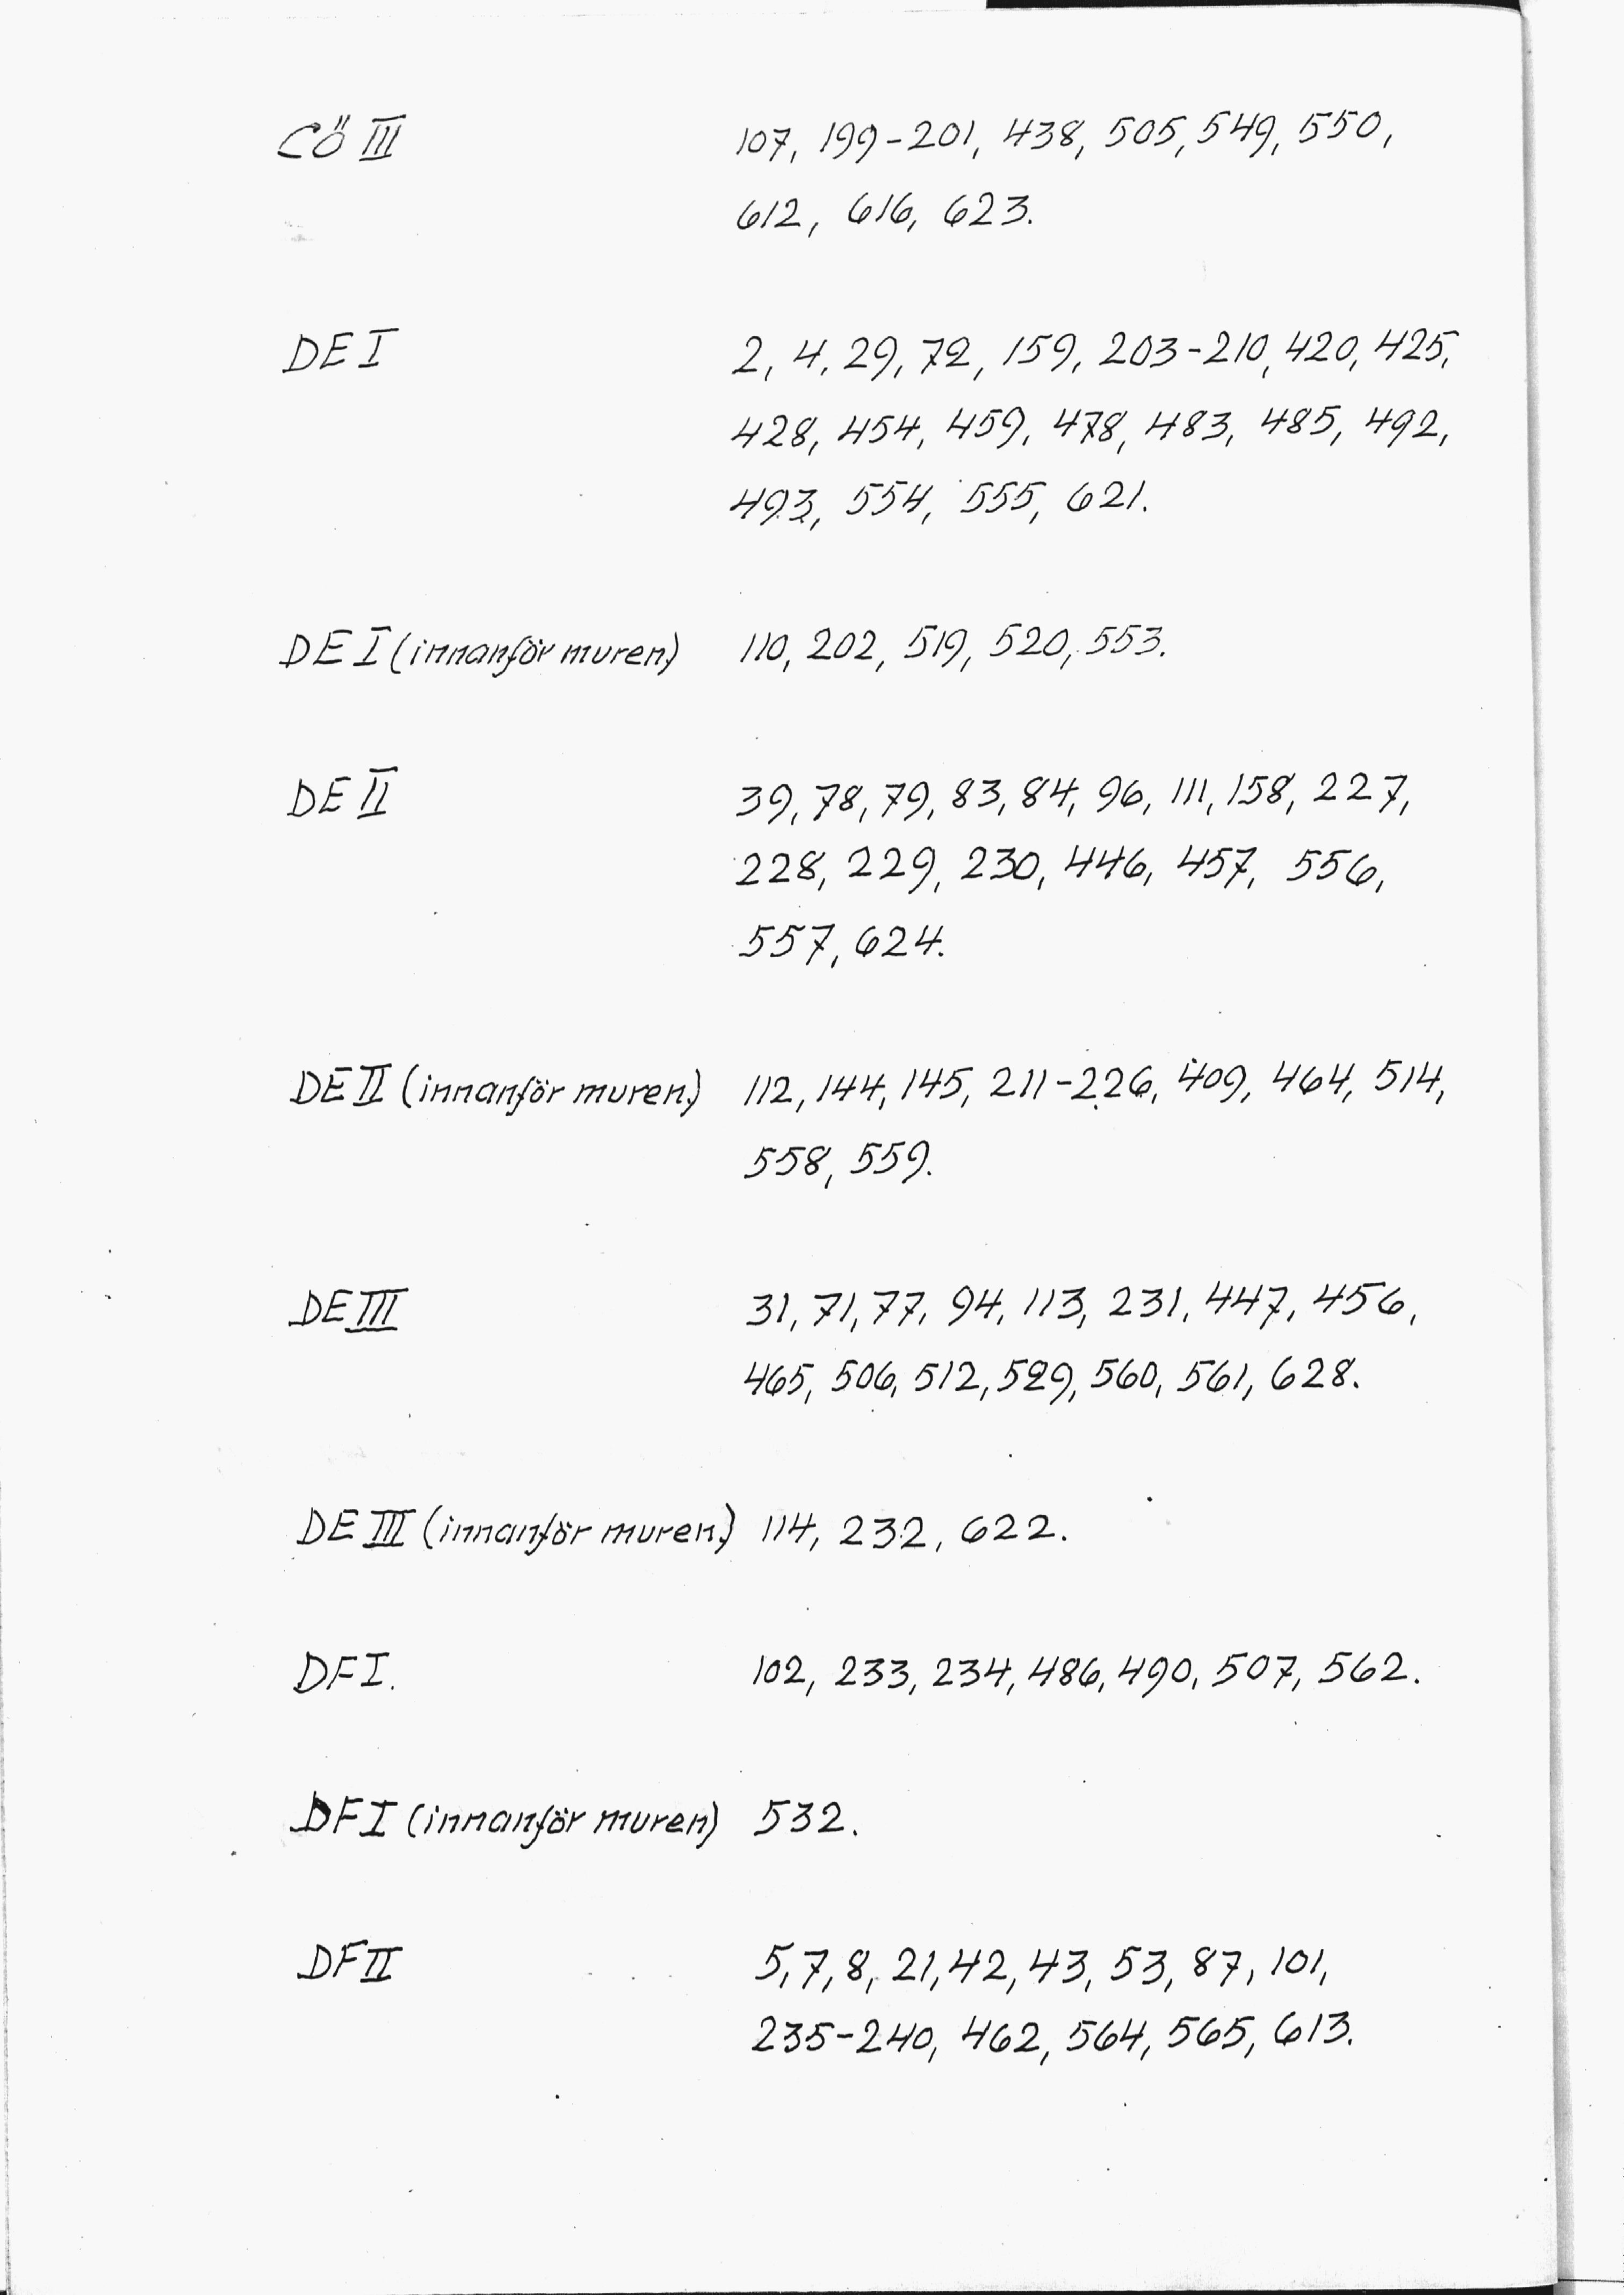 CÖ III 107, 199-201, 438, 505, 549, 550,
612, 616, 623.
DE I 2, 4, 29, 72, 159, 203-210, 420, 425,
428, 454, 459, 478, 483, 485, 492,
493, 554, 555, 621.
DE I (innanför muren) 110, 202, 519, 520, 553.
DE II 39, 78, 79, 83, 84, 96, 111, 158, 227,
228, 229, 230, 446, 457, 556,
557, 624.
DE II (innanför muren) 112, 144, 145, 211-226, 409, 464, 514,
558, 559.
DE III 31, 71, 77, 94, 113, 231, 447, 456,
465, 506, 512, 529, 560, 561, 628.
DE III (innanför muren) 114, 232, 622.
DF I. 102, 233, 234, 486, 490, 507, 562.
DF I (innanför muren) 532.
DF II 5, 7, 8, 21, 42, 43, 53, 87, 101,
235-240, 462, 564, 565, 613.